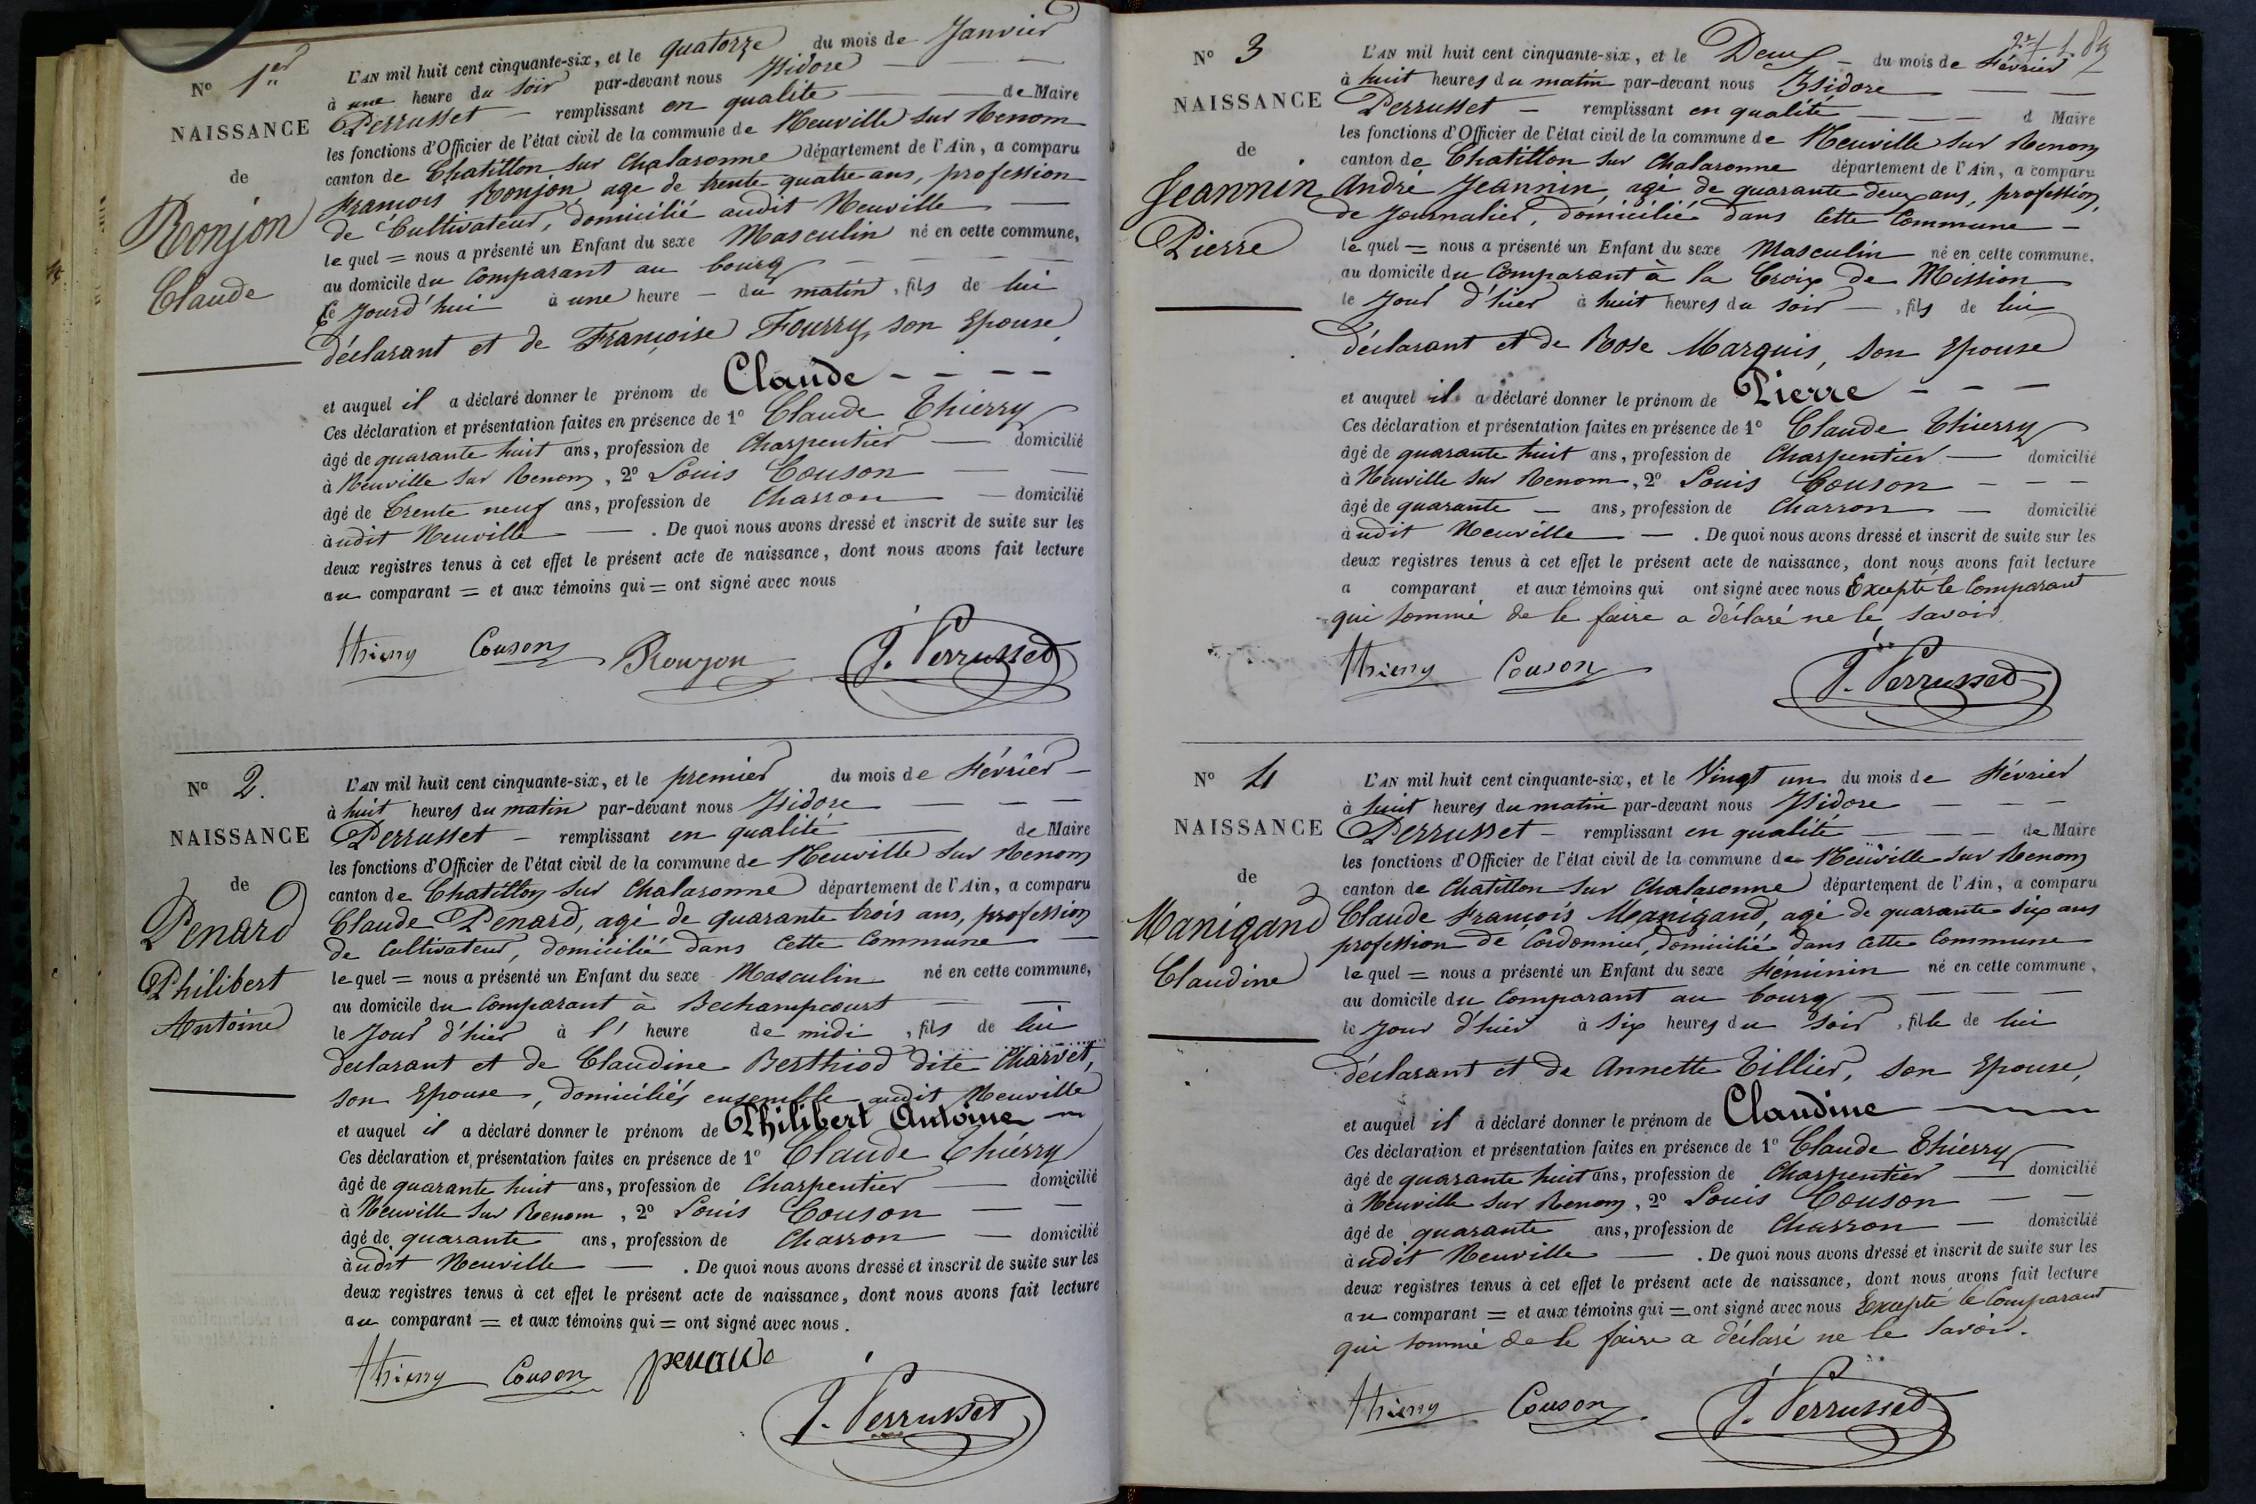 N° 1er
NAISSANCE
de
Ronjon
Claude
L'AN mil huit cent cinquante-six, et le quatorze du mois de Janvier
à une heure du soir par-devant nous Isidore
Perrusset remplissant en qualité de Maire
les fonctions d'Officier de l'état civil de la commune de Neuville sur Renom
canton de Chatillon sur Chalaronne département de l'Ain, a comparu
François Ronjon, agé de trente quatre ans, profession
de Cultivateur, domicilié audit Neuville
lequel = nous a présenté un Enfant du sexe Masculin né en cette commune,
au domicile du Comparant au bourg
Ce Jourd'hui à une heure du matin, fils de lui
déclarant et de Françoise Fourry, son Epouse,
et auquel il a déclaré donner le prénom de Claude
Ces déclaration et présentation faites en présence de 1° Claude Thierry
âgé de quarante huit ans, profession de Charpentier domicilié
à Neuville sur Renom, 2° Louis Couson
âgé de trente neuf ans, profession de Charron domicilié
audit Neuville . De quoi nous avons dressé et inscrit de suite sur les
deux registres tenus à cet effet le présent acte de naissance, dont nous avons fait lecture
au comparant = et aux témoins qui = ont signé avec nous
Thierry Couson Ronjon I. Perrusset
N° 2.
NAISSANCE
de
Penard
Philibert
Antoine
L'AN mil huit cent cinquante-six, et le premier du mois de Février
à huit heures du matin par-devant nous Isidore
Perrusset remplissant en qualité de Maire
les fonctions d'Officier de l'état civil de la commune de Neuville sur Renom
canton de Chatillon sur Chalaronne département de l'Ain, a comparu
Claude Penard, agé de quarante trois ans, profession
de Cultivateur, domicilié dans cette Commune
lequel = nous a présenté un Enfant du sexe Masculin né en cette commune,
au domicile du Comparant à Bechampcourt
le Jour d'hier à l' heure de midi, fils de lui
déclarant et de Claudine Berthiod dite Charvet,
son Epouse, domiciliés ensemble audit Neuville
et auquel il a déclaré donner le prénom de Philibert Antoine
Ces déclaration et présentation faites en présence de 1° Claude Thierry
âgé de quarante huit ans, profession de Charpentier domicilié
à Neuville sur Renom, 2° Louis Couson
âgé de quarante ans, profession de Charron domicilié
audit Neuville . De quoi nous avons dressé et inscrit de suite sur les
deux registres tenus à cet effet le présent acte de naissance, dont nous avons fait lecture
au comparant = et aux témoins qui = ont signé avec nous.
Thierry Couson penard I. Perrusset
N° 3
NAISSANCE
de
Jeannin
Pierre
L'AN mil huit cent cinquante-six, et le Deux du mois de Février
à huit heures du matin par-devant nous Isidore
Perrusset remplissant en qualité d Maire
les fonctions d'Officier de l'état civil de la commune de Neuville sur Renom
canton de Chatillon sur Chalaronne département de l'Ain, a comparu
André Jeannin, agé de quarante deux ans, profession,
de Journalier, domicilié dans cette Commune
lequel = nous a présenté un Enfant du sexe Masculin né en cette commune,
au domicile du Comparant à la Croix de Mission
le Jour d'hier à huit heures du soir, fils de lui
déclarant et de Rose Marquis, son Epouse
et auquel il a déclaré donner le prénom de Pierre
Ces déclaration et présentation faites en présence de 1° Claude Thierry
âgé de quarante huit ans, profession de Charpentier domicilié
à Neuville sur Renom, 2° Louis Couson
âgé de quarante ans, profession de Charron domicilié
audit Neuville . De quoi nous avons dressé et inscrit de suite sur les
deux registres tenus à cet effet le présent acte de naissance, dont nous avons fait lecture
a comparant et aux témoins qui ont signé avec nous Excepté le Comparant
qui sommé de le faire a déclaré ne le savoir
Thierry Couson I. Perrusset
N° 4
NAISSANCE
de
Manigand
Claudine
L'AN mil huit cent cinquante-six, et le Vingt un du mois de Février
à huit heures du matin par-devant nous Isidore
Perrusset remplissant en qualité de Maire
les fonctions d'Officier de l'état civil de la commune de Neuville sur Renom
canton de Chatillon sur Chalaronne département de l'Ain, a comparu
Claude François Manigand, agé de quarante six ans
profession de Cordonnier, domicilié dans cette Commune
lequel = nous a présenté un Enfant du sexe Féminin né en cette commune,
au domicile du Comparant au bourg
le Jour d'hier à six heures du soir, fille de lui
déclarant et de Annette Tillier, son Epouse,
et auquel il a déclaré donner le prénom de Claudine
Ces déclaration et présentation faites en présence de 1° Claude Thierry
âgé de quarante huit ans, profession de Charpentier domicilié
à Neuville sur Renom, 2° Louis Couson
âgé de quarante ans, profession de Charron domicilié
audit Neuville . De quoi nous avons dressé et inscrit de suite sur les
deux registres tenus à cet effet le présent acte de naissance, dont nous avons fait lecture
au comparant = et aux témoins qui = ont signé avec nous Excepté le Comparant
qui sommé de le faire a déclaré ne le savoir.
Thierry Couson I. Perrusset